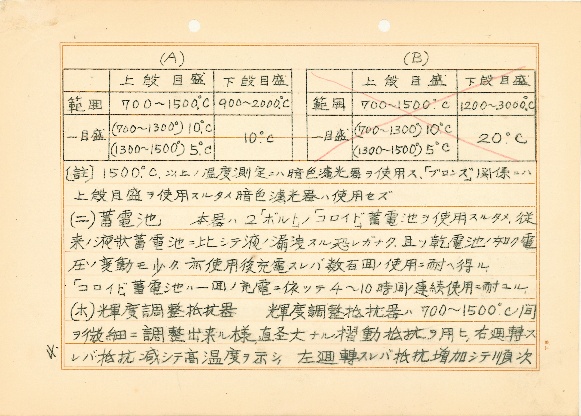 (A)
上段目盛 下段目盛
範囲 700～1500°C 900～2000°C
一目盛 (700～1300°) 10°C 10°C
(1300～1500) 5°C
(B)
上段目盛 下段目盛
範囲 700～1500°C 1200～3000°C
一目盛 (700～1300) 10°C 20°C
(1300～1500) 5°C
〔註〕 1500°C 以上ノ温度測定ニハ暗色濾光器ヲ使用ス、「ブロンズ」関係ニハ
上段目盛ヲ使用スルタメ暗色濾光器ハ使用セズ
(ニ) 蓄電池 本器ハ2「ボルト」ノ「コロイド」蓄電池ヲ使用スルタメ、従
来ノ液状蓄電池ニ比シテ液ノ漏洩スル恐レガナク、且ツ乾電池ノ如ク電
圧ノ変動モ少ク、亦使用後充電スレバ数百回ノ使用ニ耐ヘ得ル
「コロイド」蓄電池ハ一回ノ充電ニ依ッテ4～10時間連続使用ニ耐ユル
(ホ) 輝度調整抵抗器 輝度調整抵抗器ハ700～1500°Cノ間
ヲ微細ニ調整出来ル様、直圣大ナル摺動抵抗ヲ用ヒ、右廻轉ス
レバ抵抗減シテ高温度ヲ示シ、左廻轉スレバ抵抗増加シテ順次